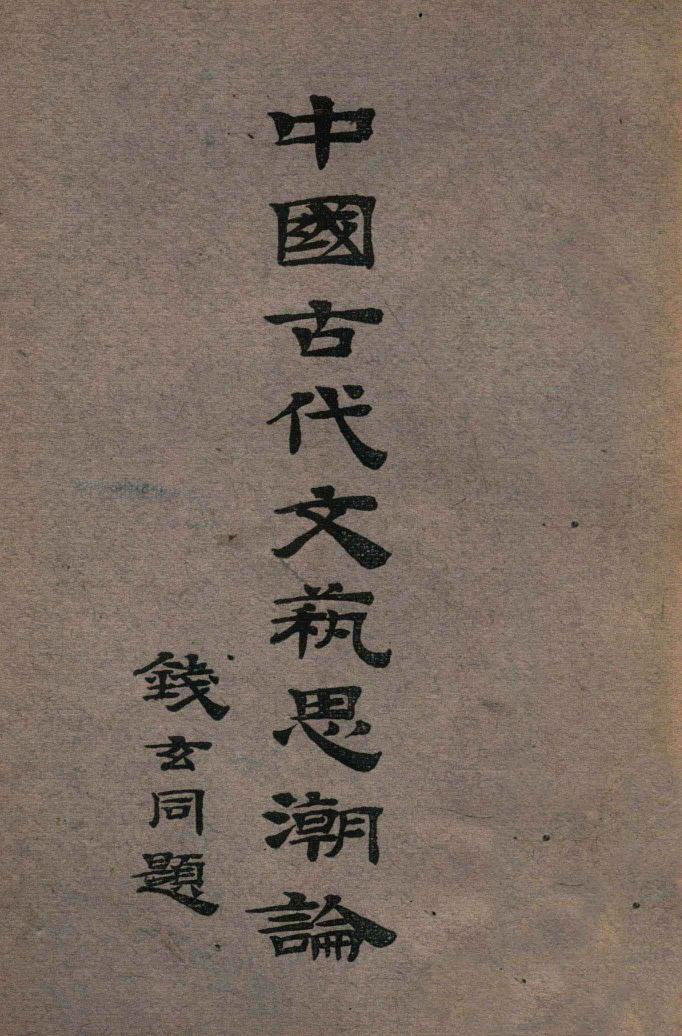 中國古代文蓺思潮論
錢玄同題